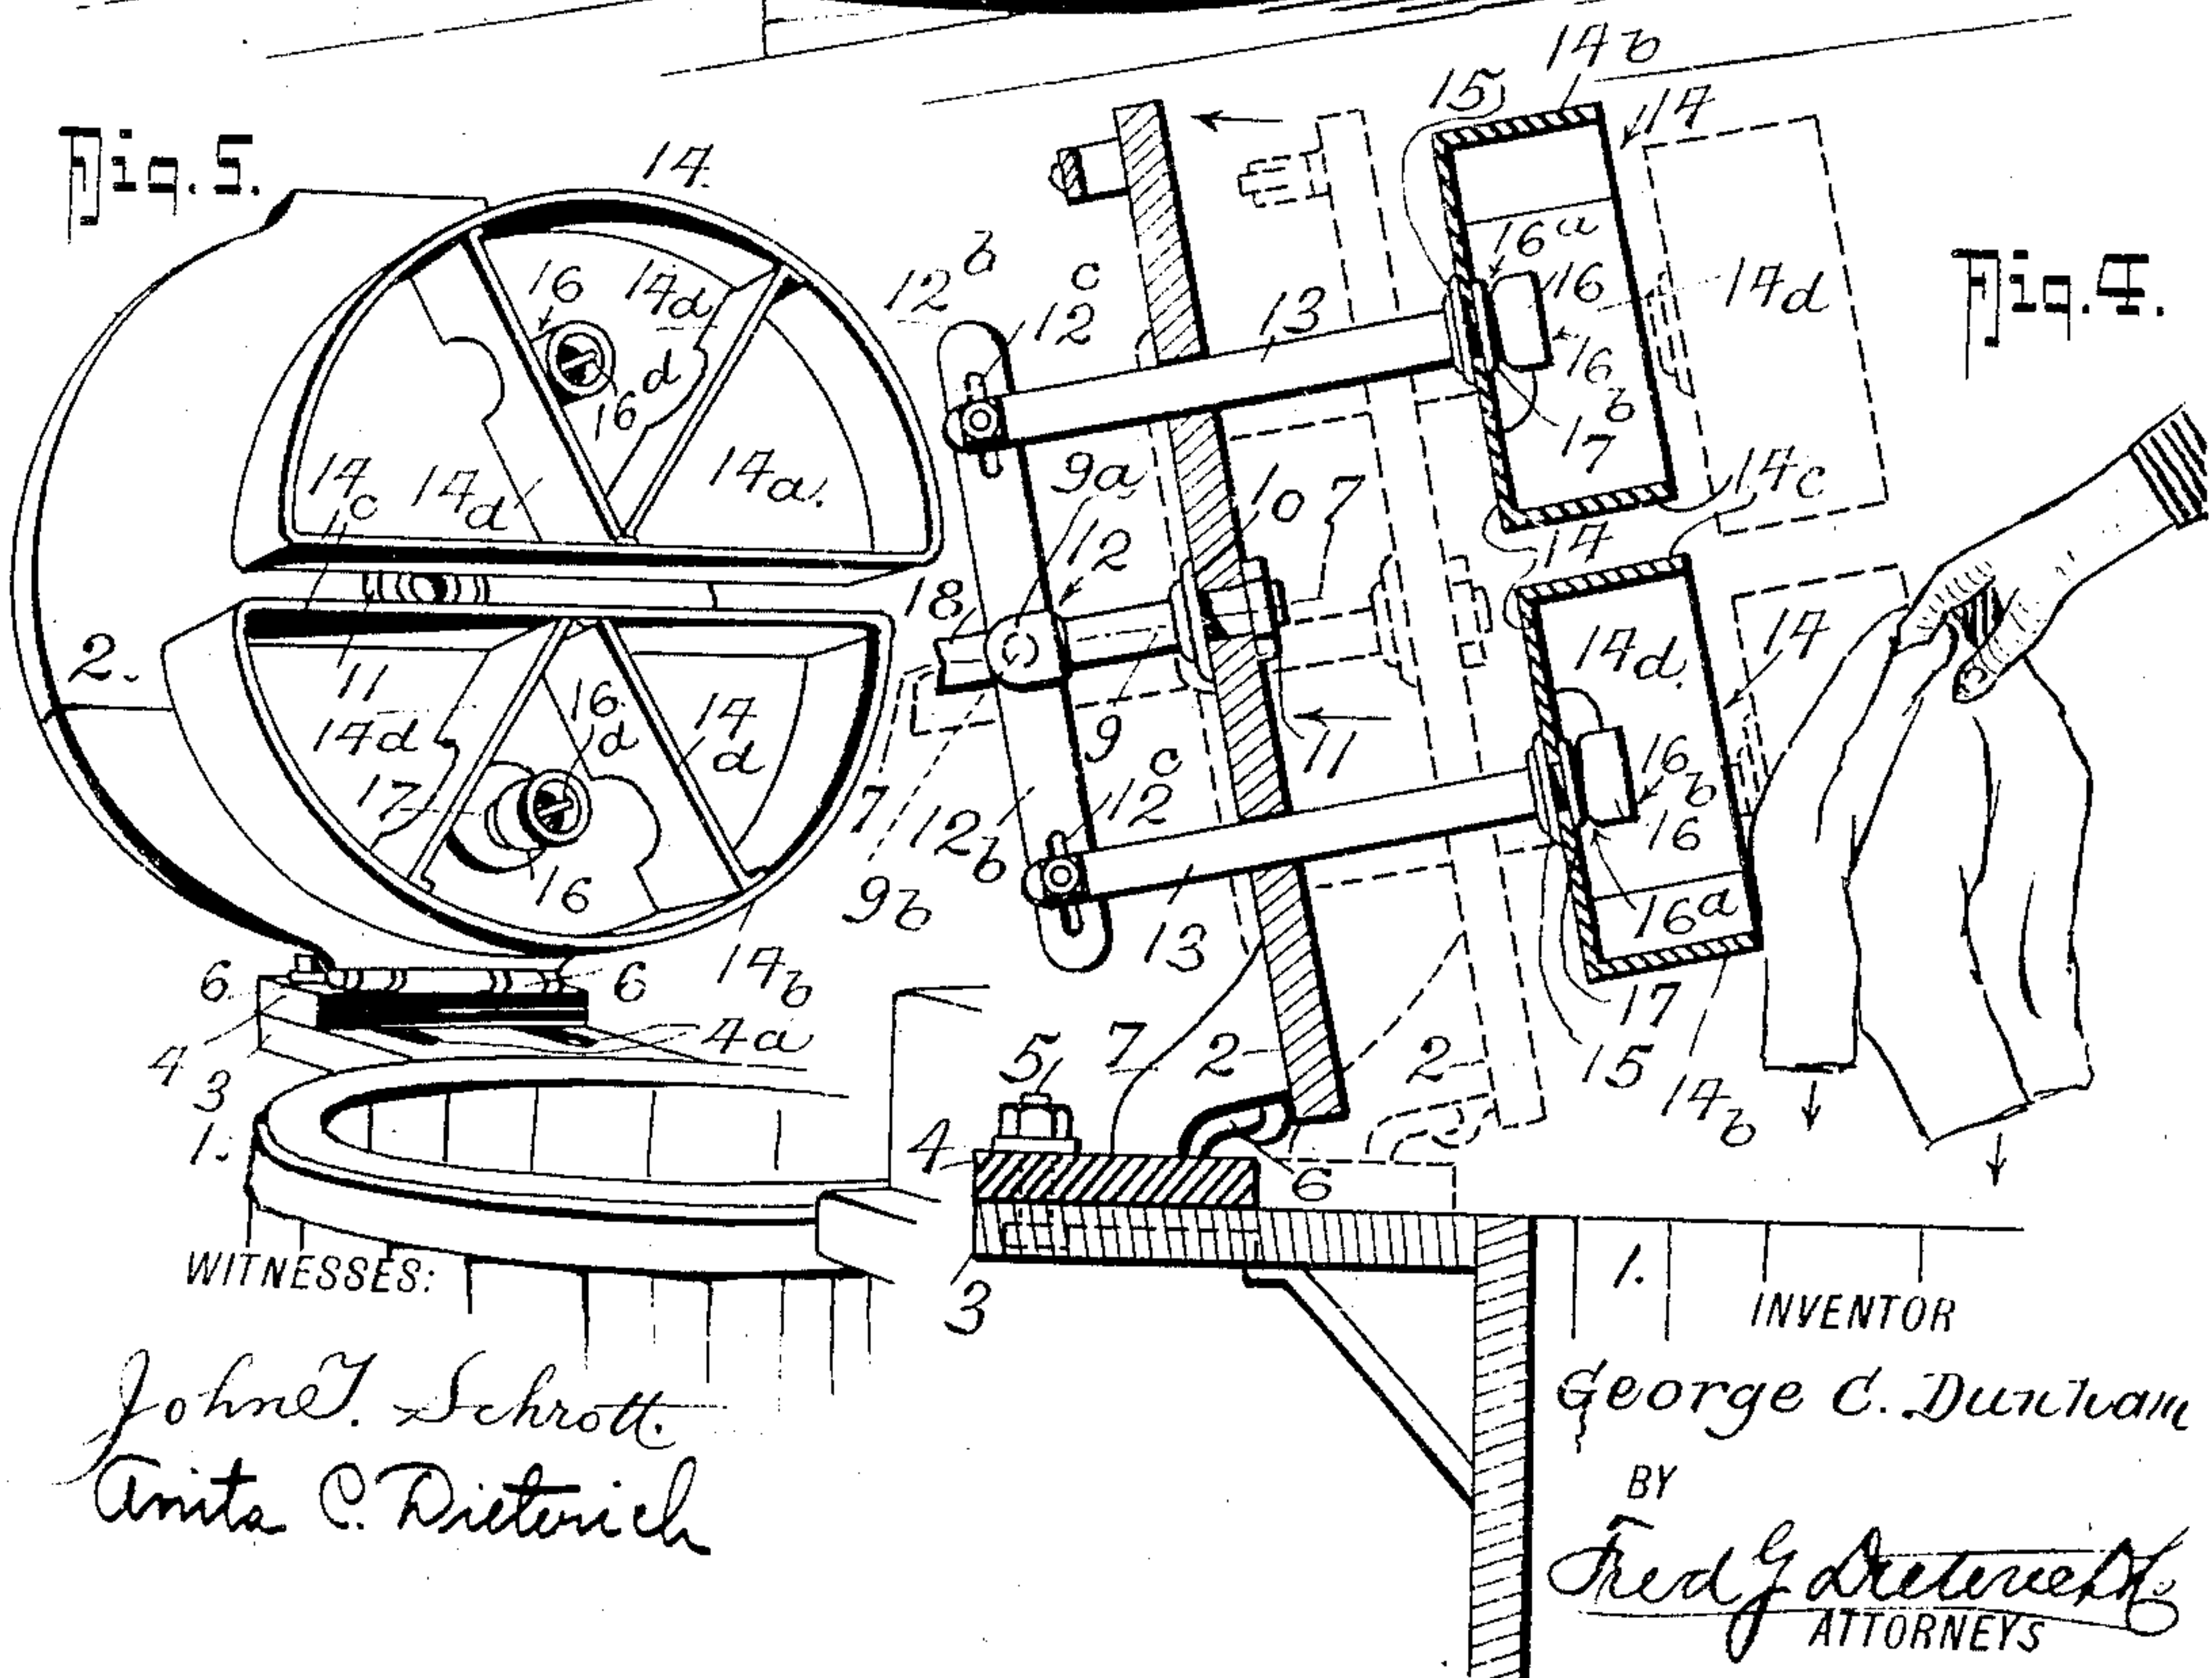 Fig. 5.
14.
16
14d
16d
14c
14d
14a.
2.
11
14d
16d
14d
17
16
14b
6
6
4a
4
3
1.
Fig. 4.
14b
15
14
16a
16
14d
16b
17
14c
14
12b
12c
13
9a
10
7
12
18
9
11
12c
7
12b
9b
13
14d.
14
16b
16
16a
17
15
14b
5
7
2
2
4
6
3
1.
WITNESSES:
John T. Schrott.
Anita C. Dieterich
INVENTOR
George C. Dunham
BY
Fred G Dieterich.
ATTORNEYS